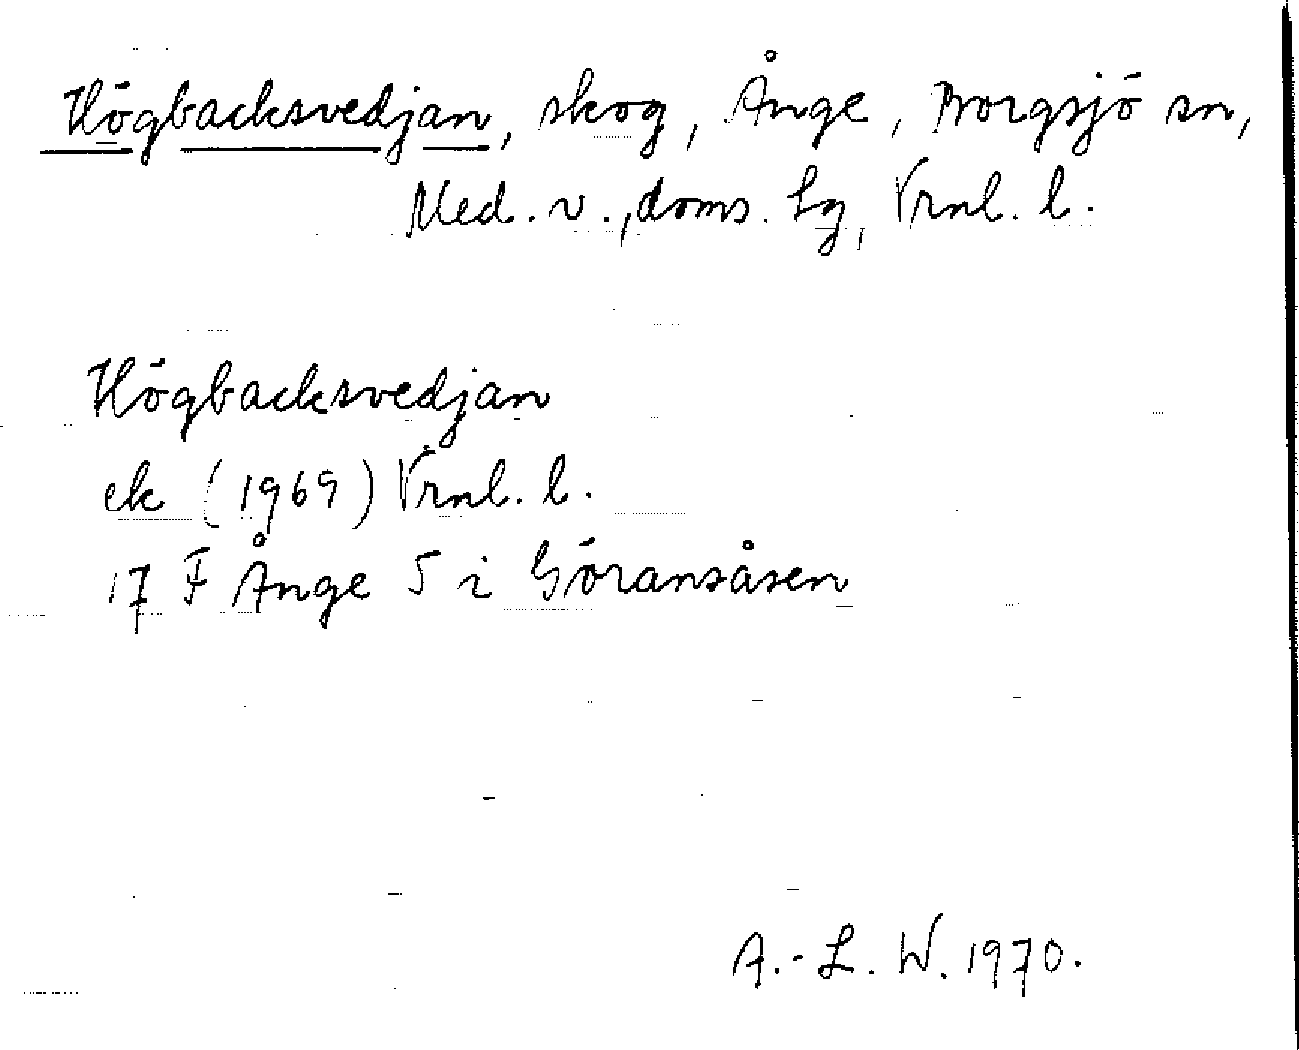 Högbacksvedjan, skog, Ånge, Borgsjö sn,
Med. v., doms. lg, Vrnl. l.
Högbacksvedjan
ek (1969) Vrnl. l.
17 F Ånge 5 i Göransåsen
A.-L. W. 1970.